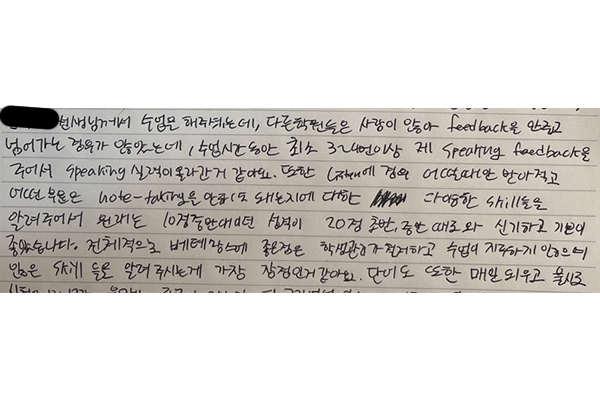 선생님께서 수업을 해주셨는데, 다른학원들은 사람이 많아 feedback을 안주고
넘어가는 경우가 많았는데, 수업시간동안 최소 3~4번이상 제 speaking feedback을
주어서 speaking 실력이 올라간거 같아요. 또한 에 경우 어떤때에만 받아적고
어떤부분은 note-taking을 안해도 돼는지에 대한 다양한 skill들을
알려주어서 원래는 10점중반대이던 성적이 20점 초반, 중반 때로 와 신기하고 기분이
좋았습니다. 전체적으로 에 좋은점은 학생관리가 철저하고 수업이 지루하지 않으며
많은 skill 들을 알려 주시는게 가장 장점인거같아요. 단어도 또한 매일 외우고 불시로